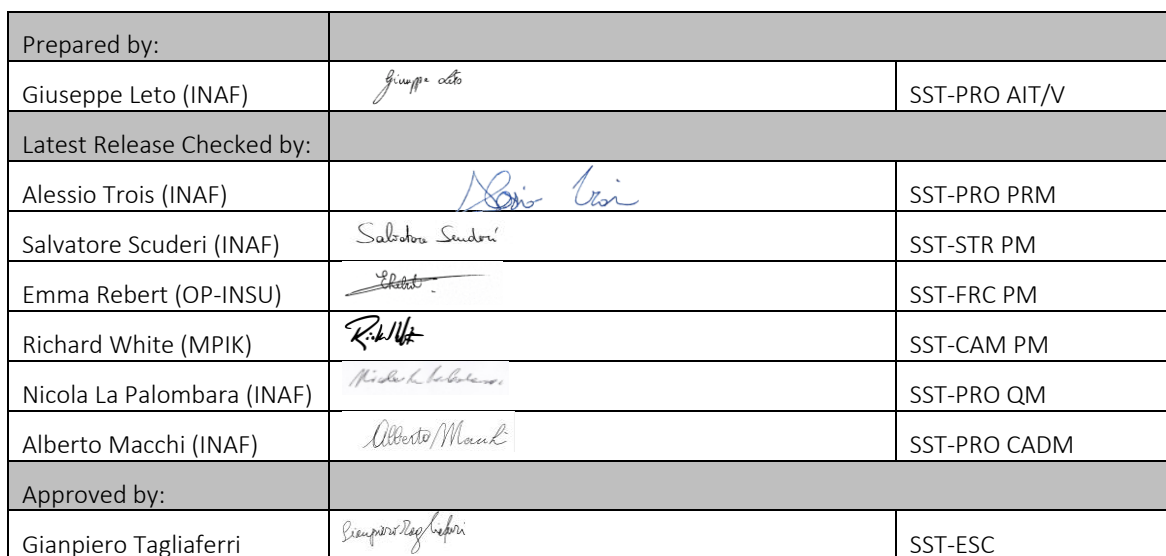 Prepared by:
Giuseppe Leto (INAF) Giuseppe Leto SST-PRO AIT/V
Latest Release Checked by:
Alessio Trois (INAF) Alessio Trois SST-PRO PRM
Salvatore Scuderi (INAF) Salvatore Scuderi SST-STR PM
Emma Rebert (OP-INSU) SST-FRC PM
Richard White (MPIK) SST-CAM PM
Nicola La Palombara (INAF) Nicola La Palombara SST-PRO QM
Alberto Macchi (INAF) Alberto Macchi SST-PRO CADM
Approved by:
Gianpiero Tagliaferri Gianpiero Tagliaferri SST-ESC